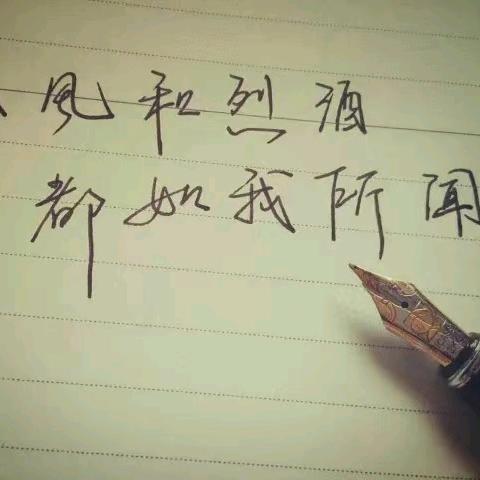 風和烈酒
都如我所闻